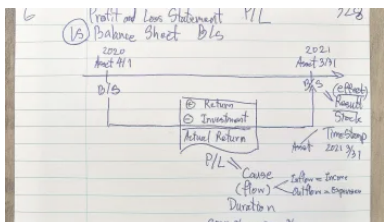 Profit and Loss Statement P/L
Vs Balance Sheet B/S
2020
Asset 4/1
2021
Asset 3/31
B/S
B/S
(effect)
Result
Stock
⊕ Return
⊖ Investment
Actual Return
Time Stamp
Asset 2021 3/31
P/L
Cause
(flow)
Inflow = Income
Outflow = Expenses
Duration